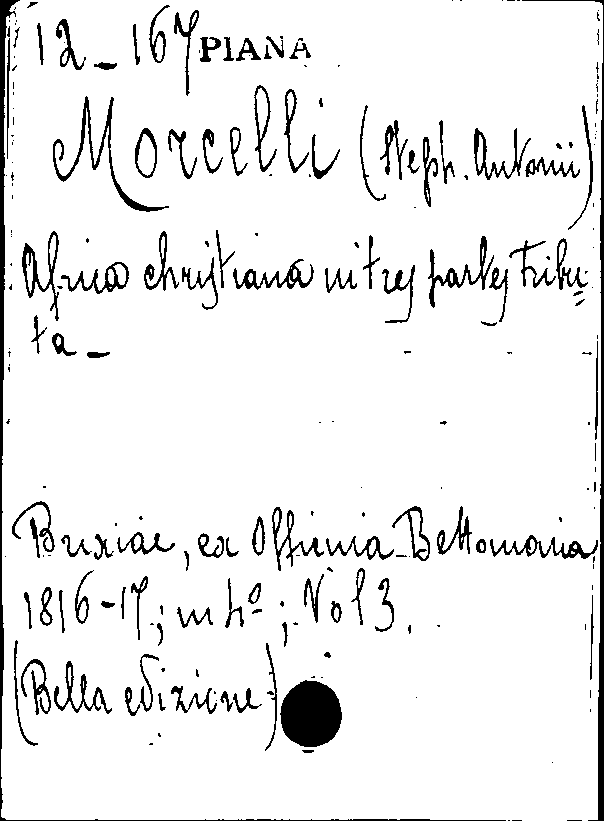 12-167 PIANA
Morcelli (Steph. Antonii)
Africa christiana in tres partes tribu=
ta -
Brixiae, ex Officina Bettoniana
1816-17; in 4º; Vol 3.
(Bella edizione)